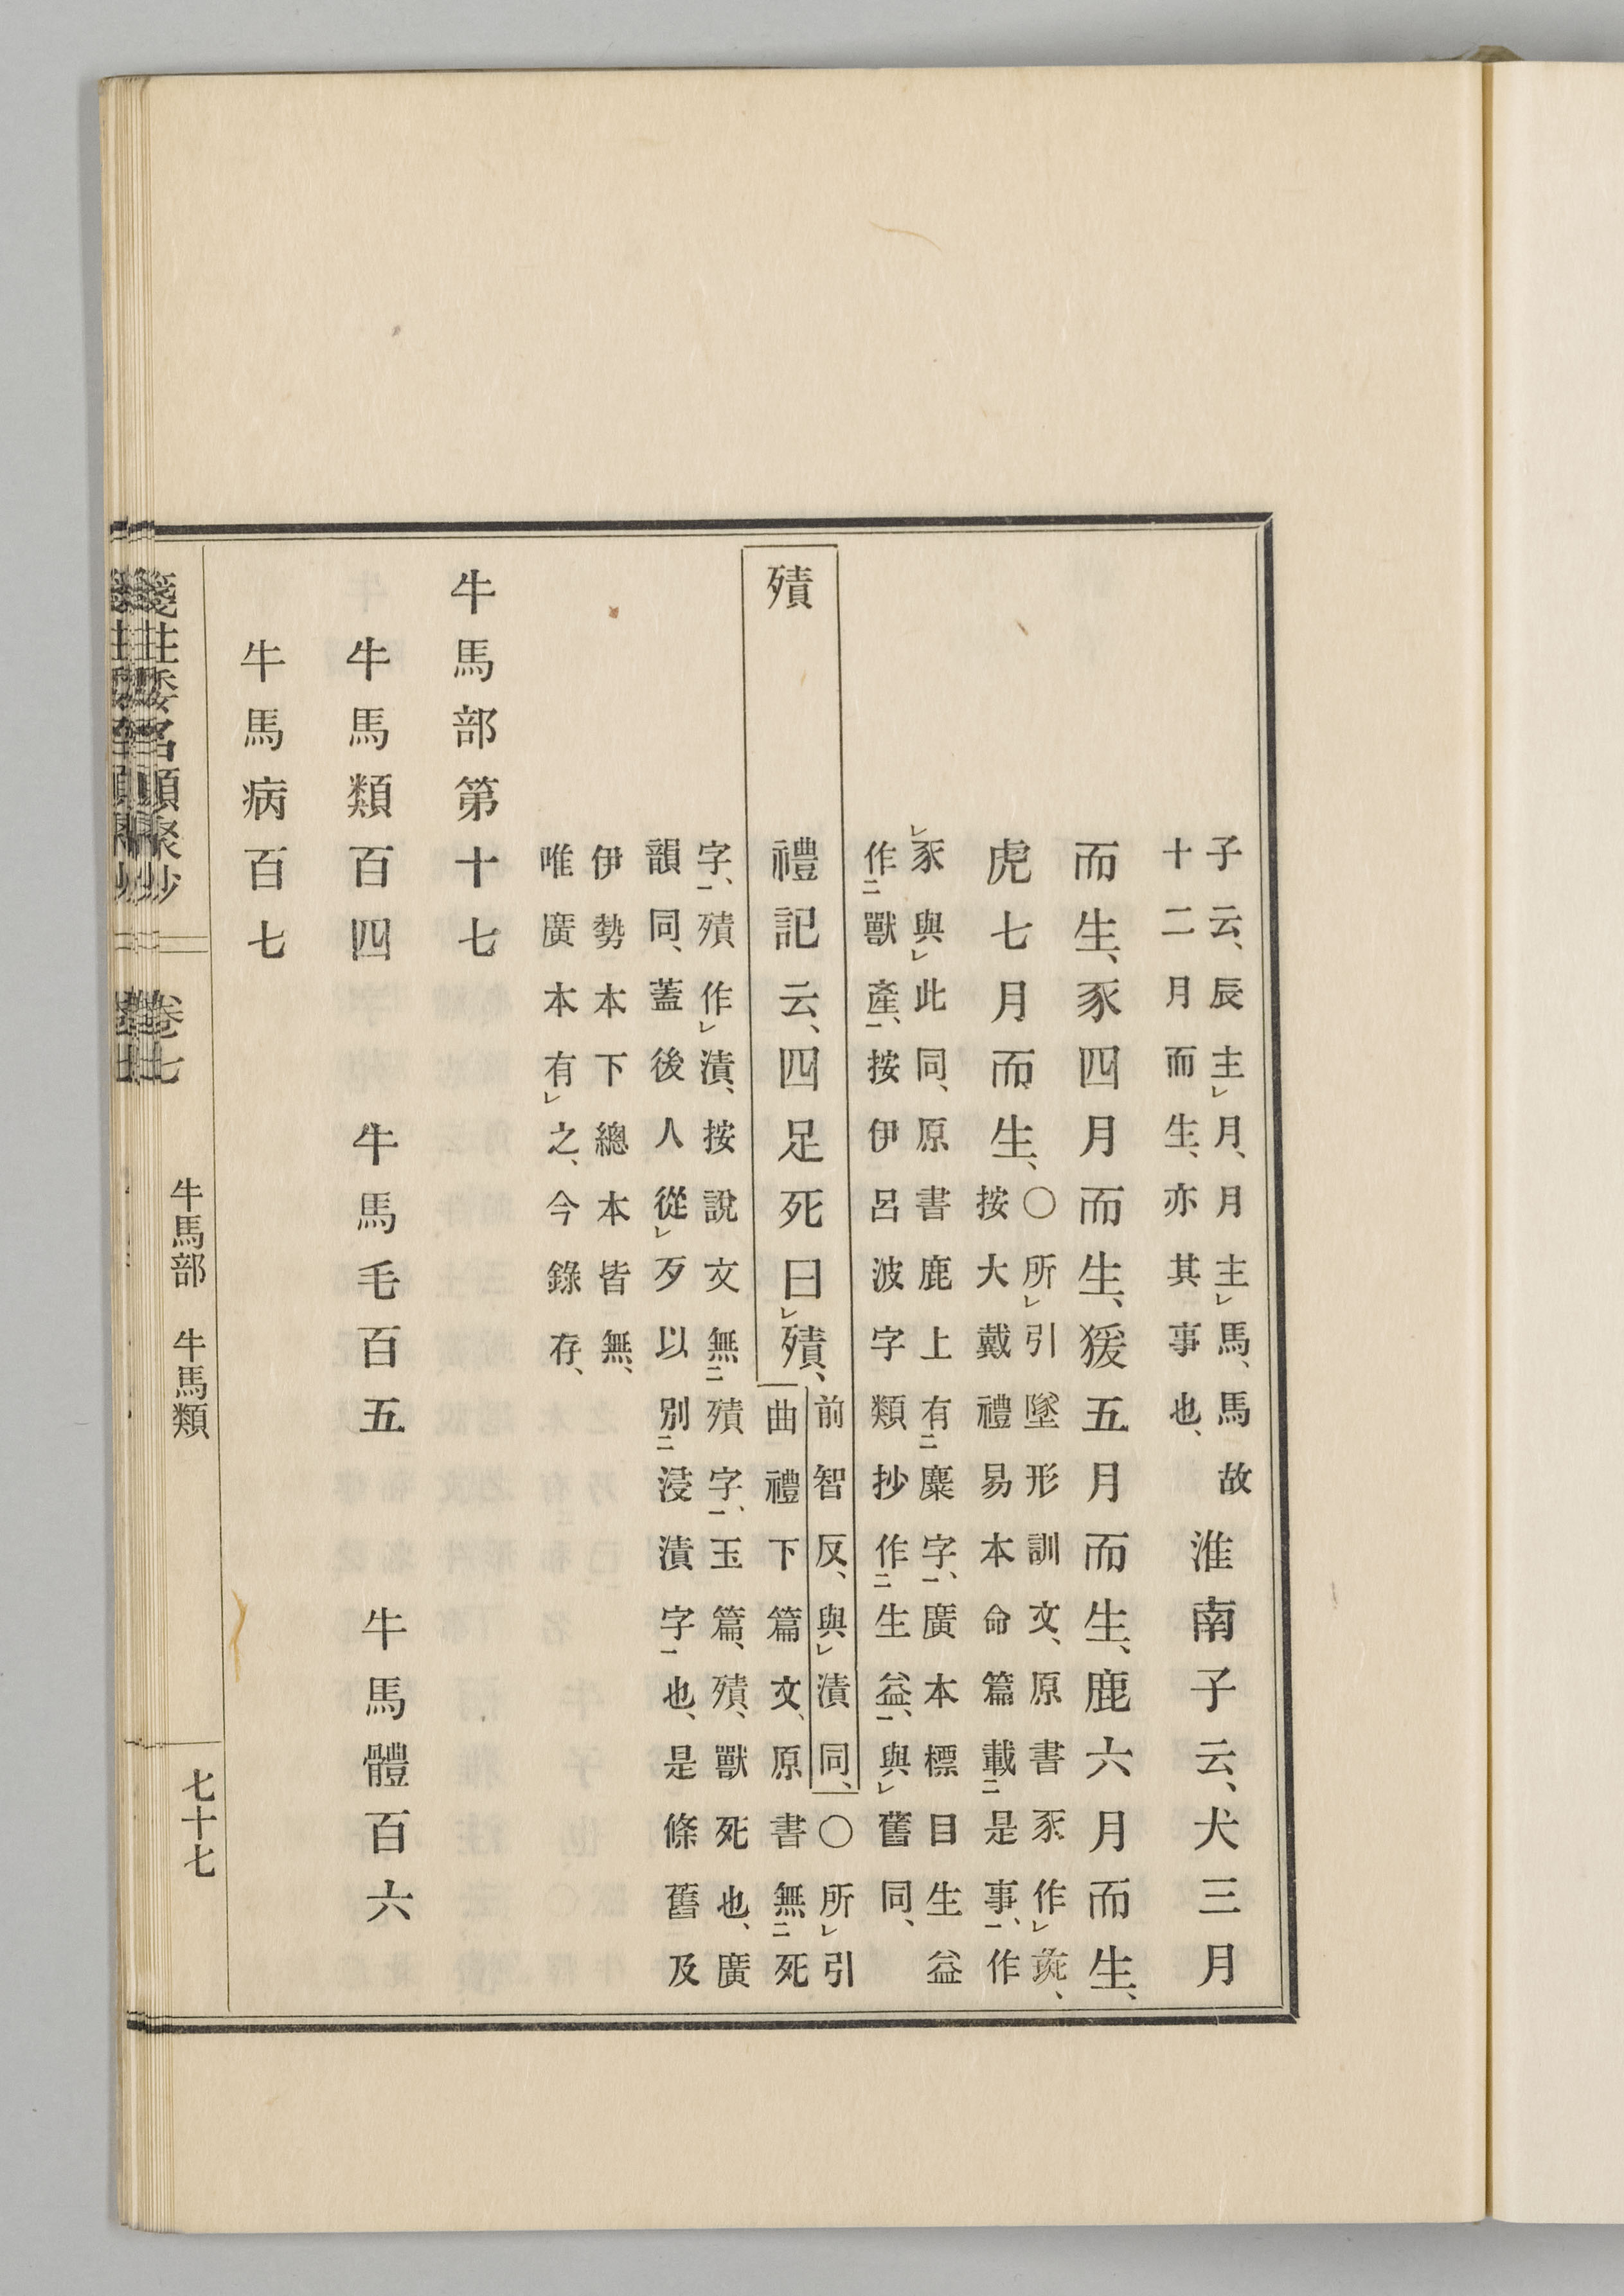 子云、辰主㆑月、月主㆑馬、馬故
十二月而生、亦其事也、
淮南子云、犬三月
而生、豕四月而生、猨五月而生、鹿六月而生、
虎七月而生、
○所㆑引墜形訓文、原書豕作㆑、
按大戴禮易本命篇載㆓是事㆒、作
㆑豕與㆑此同、原書鹿上有㆓麋字㆒、廣本標目生益
作㆓獸產㆒、按伊呂波字類抄作㆓生益㆒、與㆑舊同、
㱴 禮記云、四足死曰㆑㱴、
前智反、與㆑漬同、○所㆑引
曲禮下篇文、原書無㆓死
字㆒、㱴作㆑漬、按說文無㆓㱴字㆒、玉篇、㱴、獸死也、廣
韻同、蓋後人從㆑歹以別㆓浸漬字㆒也、是條舊及
伊勢本下總本皆無、
唯廣本有㆑之、今錄存、
牛馬部第十七
牛馬類百四 牛馬毛百五 牛馬體百六
牛馬病百七
箋注倭名類聚抄 卷七 牛馬部 牛馬類 七十七